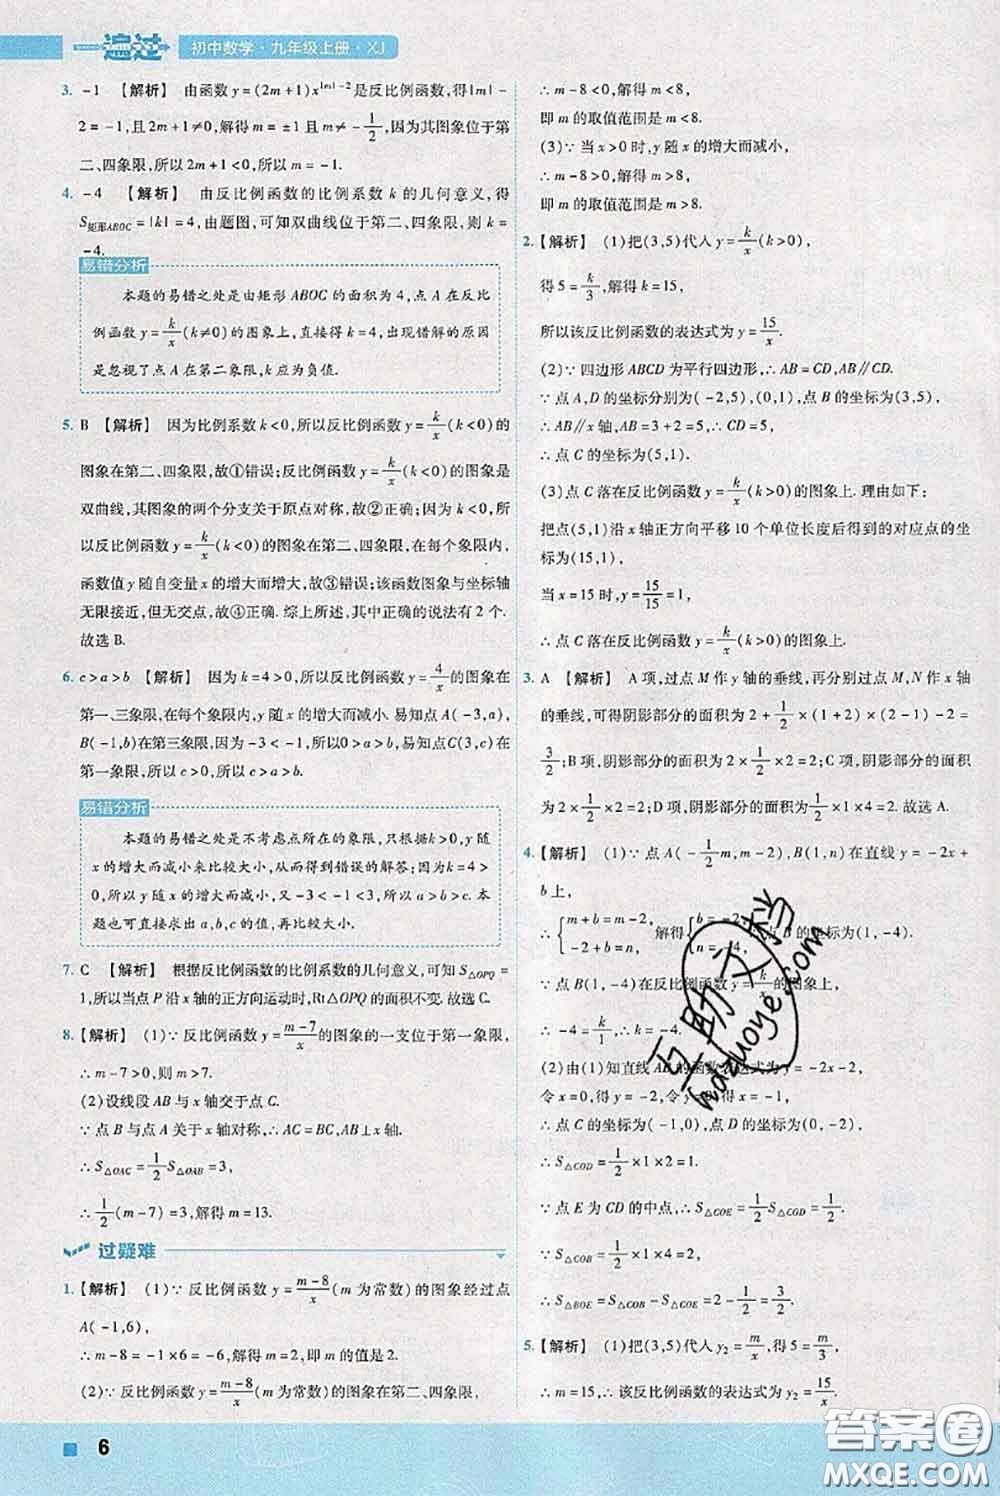 一遍过 初中数学·九年级上册·XJ
3. -1 【解析】 由函数 y=(2m+1)x^{|m|-2}是反比例函数,得|m|-
2=-1,且2m+1≠0,解得 m=±1且 m≠-1/2,因为其图象位于第
二、四象限,所以 2m+1<0,所以 m=-1.
4. -4 【解析】 由反比例函数的比例系数 k 的几何意义,得
S矩形ABOC=|k|=4,由题图,可知双曲线位于第二、四象限,则 k=
-4.
易错分析
本题的易错之处是由矩形 ABOC 的面积为 4,点 A 在反比
例函数 y=k/x(k≠0)的图象上,直接得 k=4,出现错解的原因
是忽视了点 A 在第二象限,k 应为负值.
5. B 【解析】 因为比例系数 k<0,所以反比例函数 y=k/x(k<0)的
图象在第二、四象限,故①错误;反比例函数 y=k/x(k<0)的图象是
双曲线,其图象的两个分支关于原点对称,故②正确;因为 k<0,所
以反比例函数 y=k/x(k<0)的图象在第二、四象限,在每个象限内,
函数值 y 随自变量 x 的增大而增大,故③错误;该函数图象与坐标轴
无限接近,但无交点,故④正确. 综上所述,其中正确的说法有 2 个.
故选 B.
6. c>a>b 【解析】 因为 k=4>0,所以反比例函数 y=4/x的图象在
第一、三象限,在每个象限内,y 随 x 的增大而减小. 易知点 A(-3,a),
B(-1,b)在第三象限,因为-3<-1,所以0>a>b;易知点C(3,c)在
第一象限,所以 c>0,所以 c>a>b.
易错分析
本题的易错之处是不考虑点所在的象限,只根据k>0,y 随
x 的增大而减小来比较大小,从而得到错误的解答;因为 k=4>
0,所以 y 随 x 的增大而减小,又-3<-1<3,所以 a>b>c. 本
题也可直接求出 a,b,c 的值,再比较大小.
7. C 【解析】 根据反比例函数的比例系数的几何意义,可知 S△OPQ=
1,所以当点 P 沿 x 轴的正方向运动时,Rt△OPQ 的面积不变.故选 C.
8. 【解析】 (1)∵反比例函数 y=(m-7)/x的图象的一支位于第一象限,
∴m-7>0,即 m>7.
(2)设线段 AB 与 x 轴交于点 C.
∵点 B 与点 A 关于 x 轴对称,∴AC=BC,AB⊥x 轴.
∴S△OAC=1/2S△OAB=3,
∴1/2(m-7)=3,解得 m=13.
过疑难
1. 【解析】 (1)∵反比例函数 y=(m-8)/x(m 为常数)的图象经过点
A(-1,6),
∴m-8=-1×6=-6,解得 m=2,即 m 的值是 2.
(2)∵反比例函数 y=(m-8)/x(m 为常数)的图象在第二、四象限,
∴m-8<0,解得 m<8,
即 m 的取值范围是 m<8.
(3)∵当 x>0 时,y 随 x 的增大而减小,
∴m-8>0,解得 m>8,
即 m 的取值范围是 m>8.
2. 【解析】 (1)把(3,5)代入 y=k/x(k>0),
得 5=k/3,解得 k=15,
所以该反比例函数的表达式为 y=15/x.
(2)∵四边形 ABCD 为平行四边形,∴AB=CD,AB∥CD.
∵点 A,D 的坐标分别为(-2,5),(0,1),点 B 的坐标为(3,5),
∴AB∥x 轴,AB=3+2=5,∴CD=5,
∴点 C 的坐标为(5,1).
(3)点 C 落在反比例函数 y=k/x(k>0)的图象上. 理由如下:
把点(5,1)沿 x 轴正方向平移 10 个单位长度后得到的对应点的坐
标为(15,1),
当 x=15 时,y=15/15=1,
∴点 C 落在反比例函数 y=k/x(k>0)的图象上.
3. A 【解析】 A 项,过点 M 作 y 轴的垂线,再分别过点 M,N 作 x 轴
的垂线,可得阴影部分的面积为 2+1/2×(1+2)×(2-1)-2=
3/2;B 项,阴影部分的面积为 2×1/2×2=2;C 项,阴影部分的面积
为 2×1/2×2=2;D 项,阴影部分的面积为 4×1/2×2=4. 故选 A.
4. 【解析】 (1)∵点 A(-1/2m,m-2),B(1,n)在直线 y=-2x+
b 上,
∴{m+b=m-2, -2+b=n, 解得{b=-2, n=-4. 点 B 的坐标为(1,-4).
∵点 B(1,-4)在反比例函数 y=k/x的图象上,
∴-4=k/1,∴k=-4.
(2)由(1)知直线 AB 的函数表达式为 y=-2x-2,
令 x=0,解得 y=-2,令 y=0,解得 x=-1,
∴点 C 的坐标为(-1,0),点 D 的坐标为(0,-2),
∴S△COD=1/2×1×2=1.
∵点 E 为 CD 的中点,∴S△COE=1/2S△COD=1/2.
∵S△COB=1/2×1×4=2,
∴S△BOE=S△COB-S△COE=2-1/2=3/2.
5. 【解析】 (1)把(3,5)代入 y₂=m/x,得 5=m/3,
∴m=15,∴该反比例函数的表达式为 y₂=15/x.
百助文档
baizuoye.com
6
答案圈
MXQE.COM